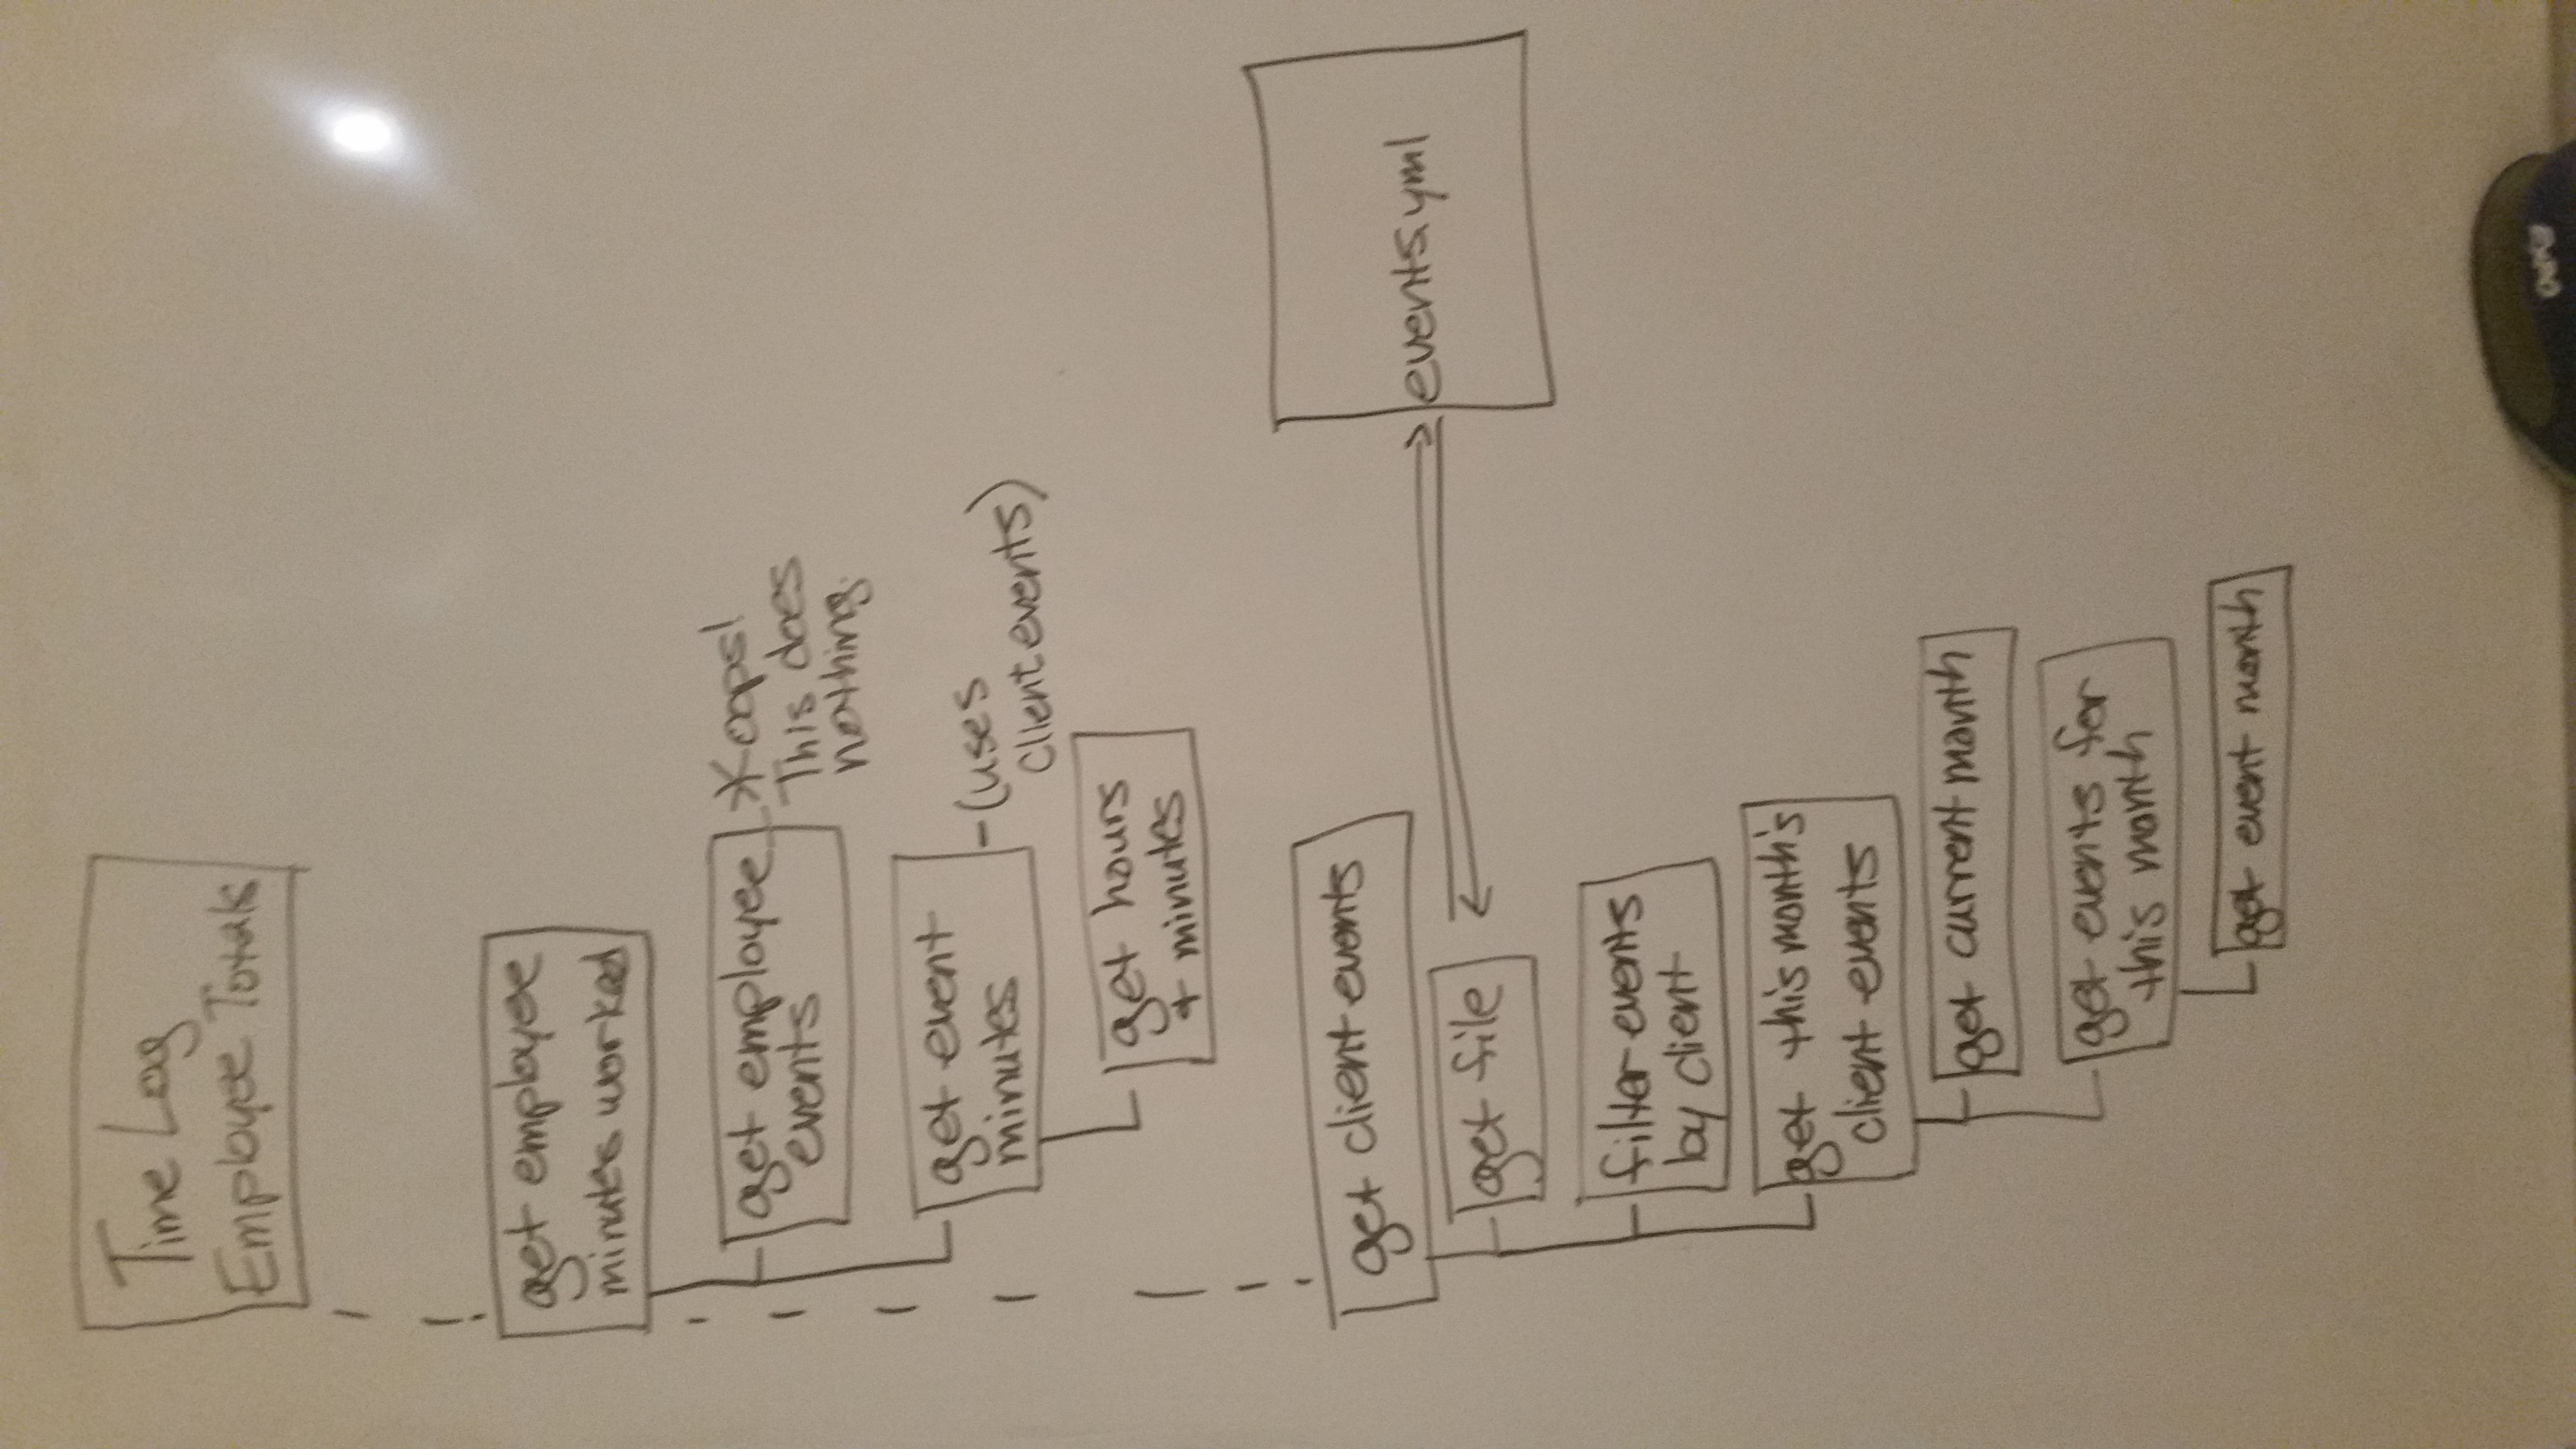 Time Log
Employee Totals
get employee
minutes worked
get employee
events
* oops!
This does
nothing.
get event
minutes
- (uses
client events)
get hours
+ minutes
get client events
get file
events.yml
filter events
by client
get this month's
client events
get current month
get events for
this month
get event month